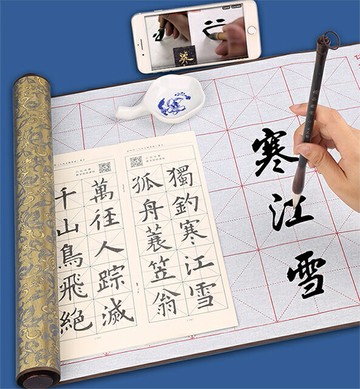 千山鳥飛絕
萬徑人蹤滅
孤舟蓑笠翁
獨釣寒江雪
寒江雪